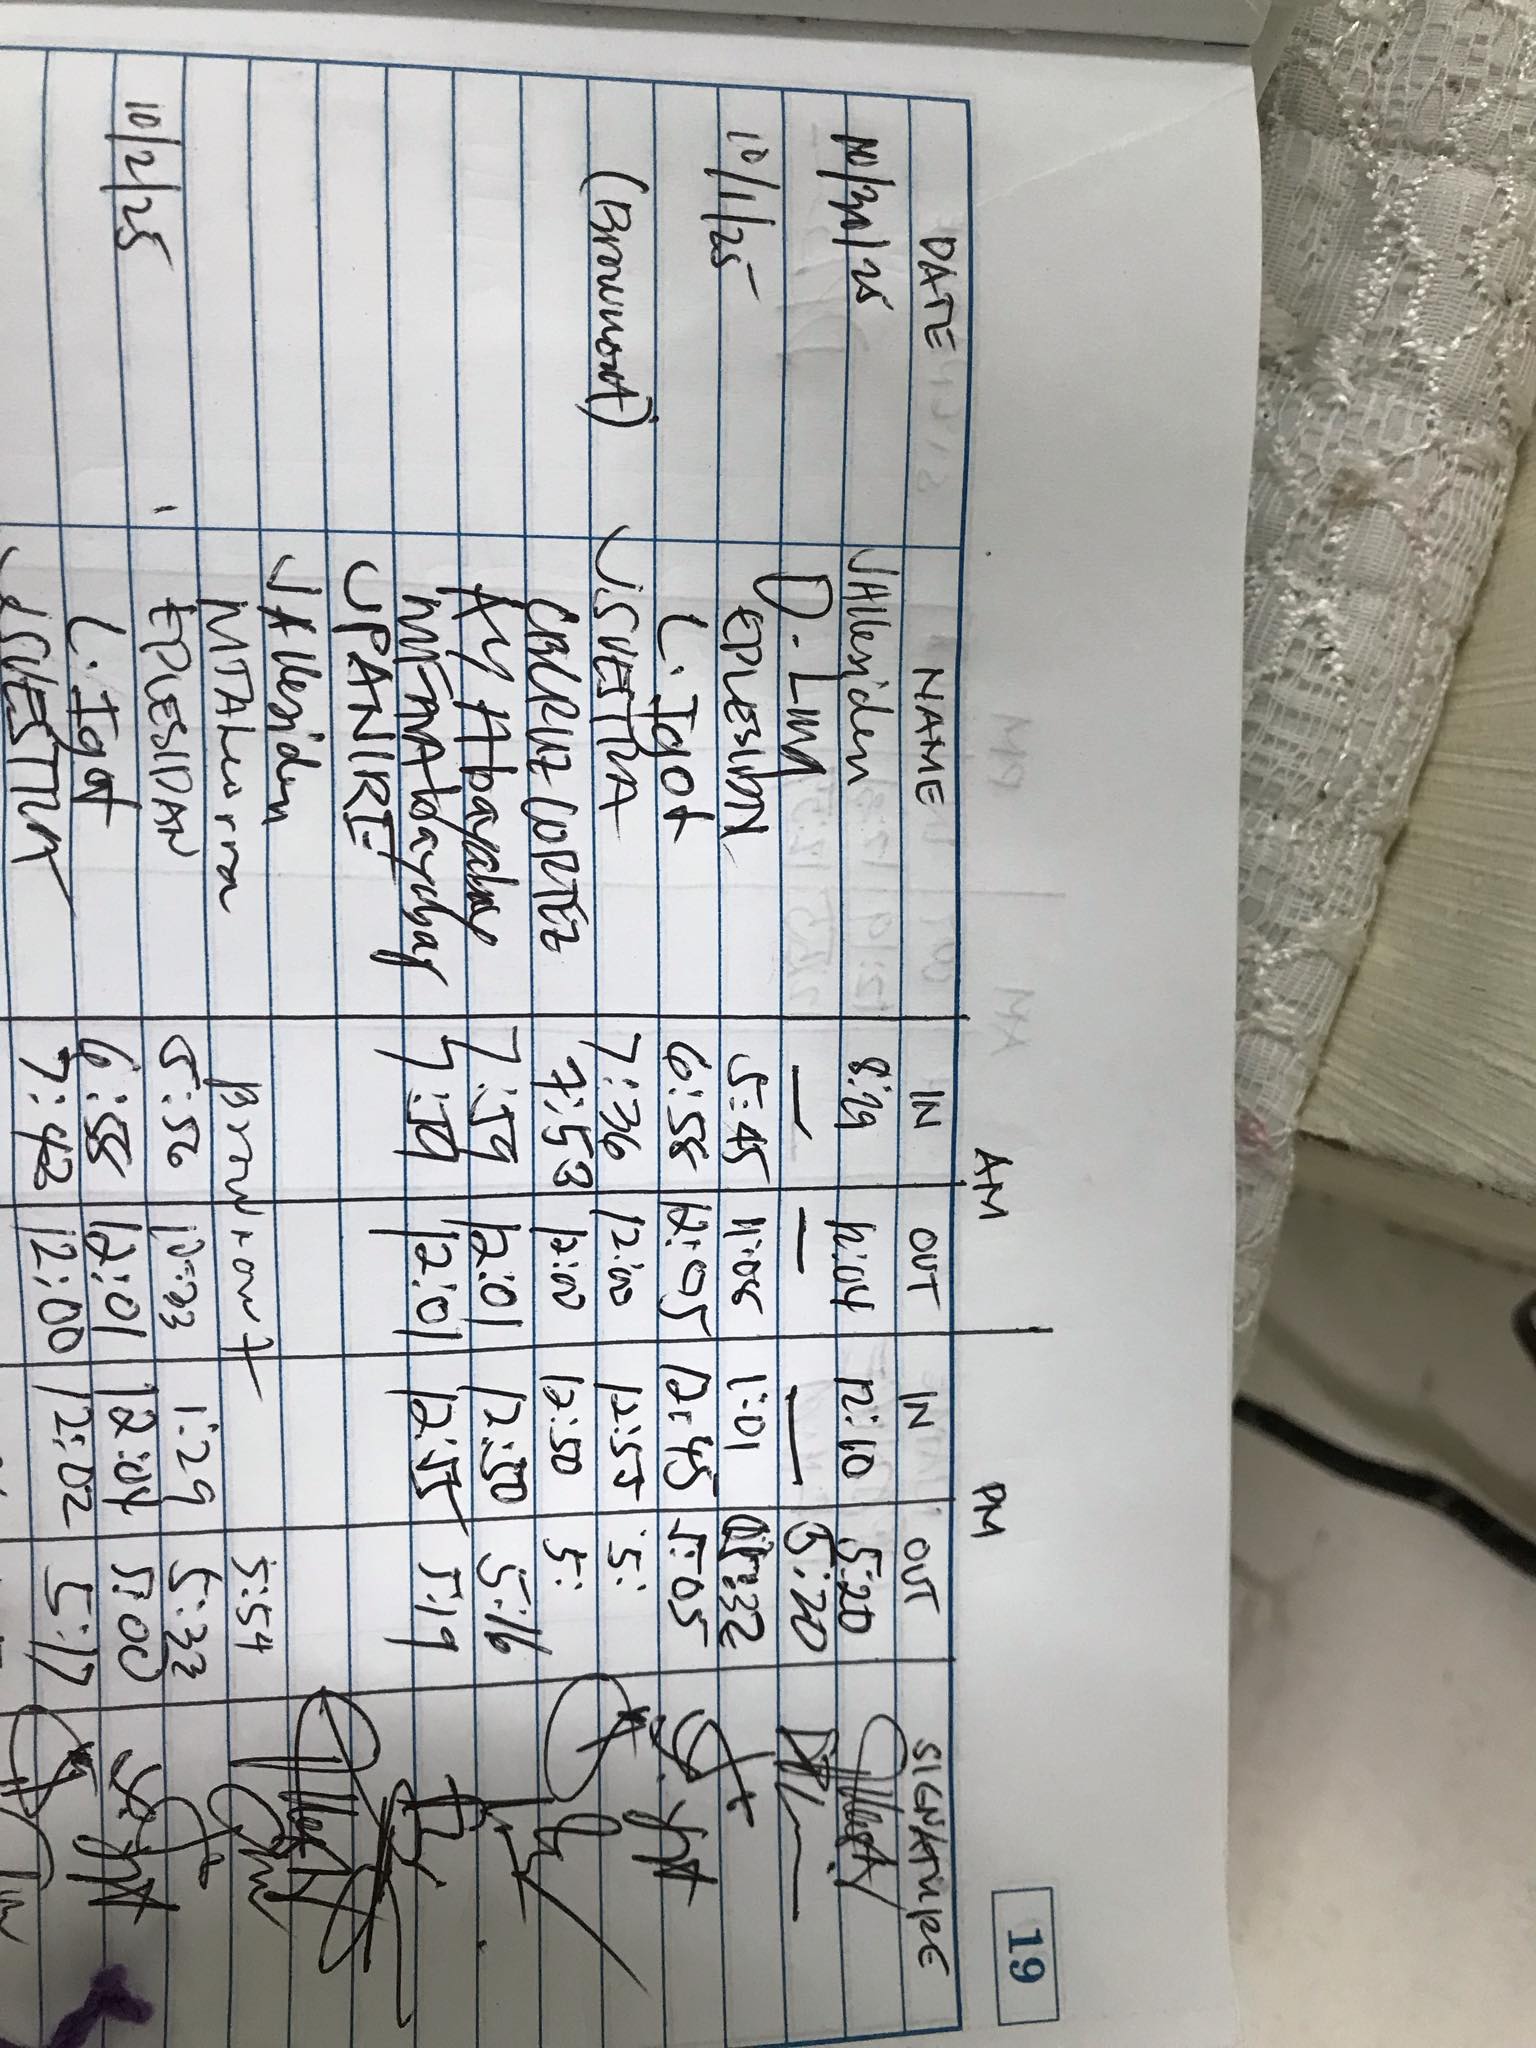 19
AM PM
DATE NAME IN OUT IN OUT SIGNATURE
JAllesiden 8:29 12:04 12:10 5:20
D. Ling — — — 5:20
10/1/25 EPLESIDAN 5:45 11:06 1:01
L. Igot 6:58 12:05 12:45 5:05
JSVESTRA 7:36 12:00 12:55 5:
(Brownout) CBCRUZ CORTEZ 7:53 12:00 12:50 5:
AY Abaychay 7:59 12:01 12:50 5:16
Abaychay 7:59 12:01 12:55 5:19
JPANIRE
JAllesiden
Brownout 5:54
10/2/25 EPLESIDAN 5:56 1:29 5:33
L. Igot 6:58 12:01 12:04 5:00
JSVESTRA 7:42 12:00 12:02 5:17